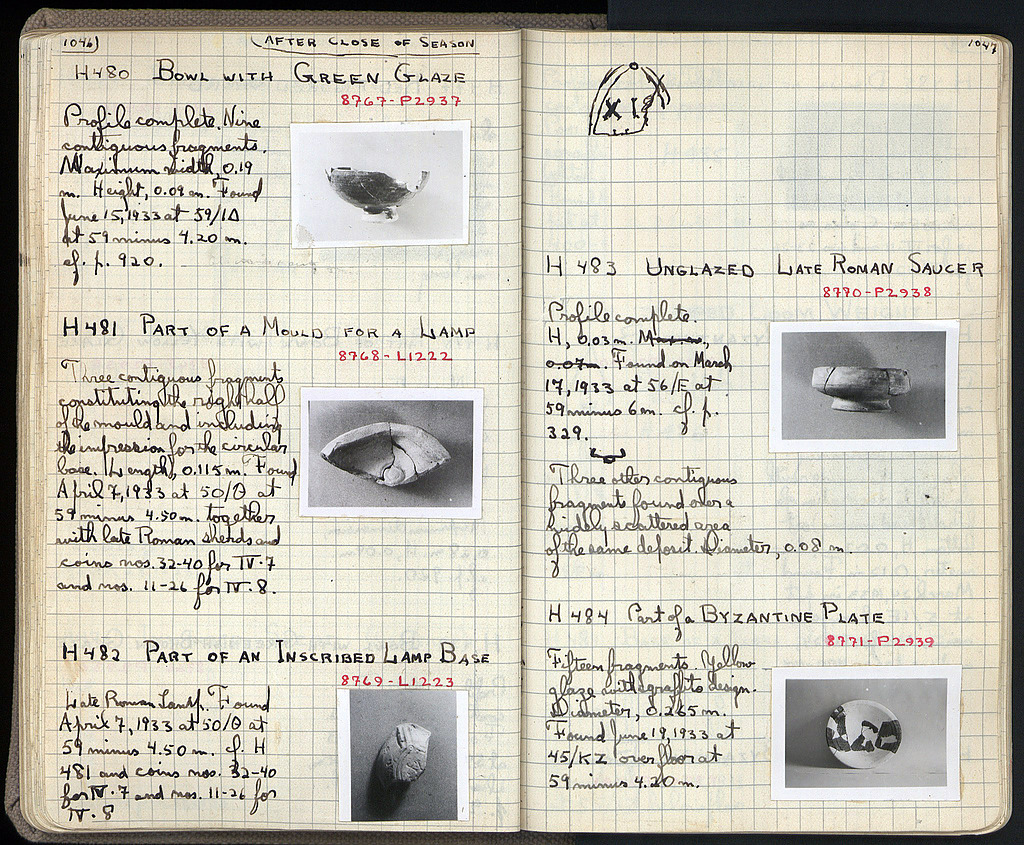 1046)
AFTER CLOSE OF SEASON
H480 BOWL WITH GREEN GLAZE
8767-P2937
Profile complete. Nine
contiguous fragments.
Maximum width, 0.19
m. Height, 0.09 m. Found
June 15, 1933 at 59/ΙΔ
at 59 minus 4.20 m.
cf. p. 920.
H481 PART OF A MOULD FOR A LAMP
8768-L1222
Three contiguous fragments
constituting the right half
of the mould and including
the impression for the circular
base. Length, 0.115 m. Found
April 7, 1933 at 50/Θ at
59 minus 4.50 m. together
with late Roman sherds and
coins nos. 32-40 for IV·7
and nos. 11-26 for IV·8.
H482 PART OF AN INSCRIBED LAMP BASE
8769-L1223
Late Roman Lamp. Found
April 7, 1933 at 50/Θ at
59 minus 4.50 m. cf. H
481 and coins nos. 32-40
for IV·7 and nos. 11-26 for
IV·8
1047
X I
H 483 UNGLAZED LATE ROMAN SAUCER
8770-P2938
Profile complete.
H, 0.03 m. Max. w.,
0.07 m. Found on March
17, 1933 at 56/E at
59 minus 6 m. cf. p.
329.
Three other contiguous
fragments found over a
widely scattered area
of the same deposit. Diameter, 0.08 m.
H 484 Part of a BYZANTINE PLATE
8771-P2939
Fifteen fragments. Yellow
glaze with sgraffito design.
Diameter, 0.265 m.
Found June 19, 1933 at
45/KZ over floor at
59 minus 4.20 m.